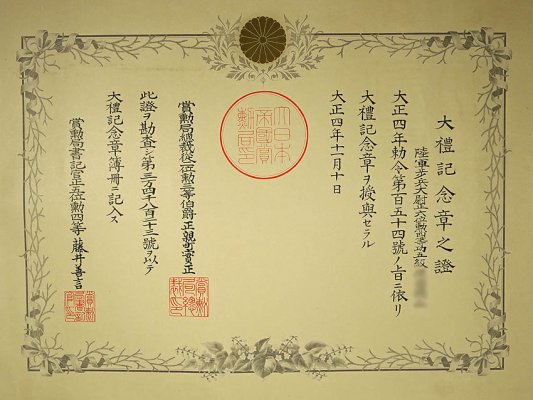 大禮記念章之證
陸軍歩兵大尉正六位勲四等功五級
大正四年勅令第百五十四號ノ旨ニ依リ
大禮記念章ヲ授與セラル
大正四年十一月十日
大日本
帝國賞
勲局印
賞勲局總裁從二位勲一等伯爵正親町實正
此證ヲ勘査シ第三万四千八百二十三號ヲ以テ
大禮記念章簿冊ニ記入ス
賞勲局書記官正五位勲四等藤井善言